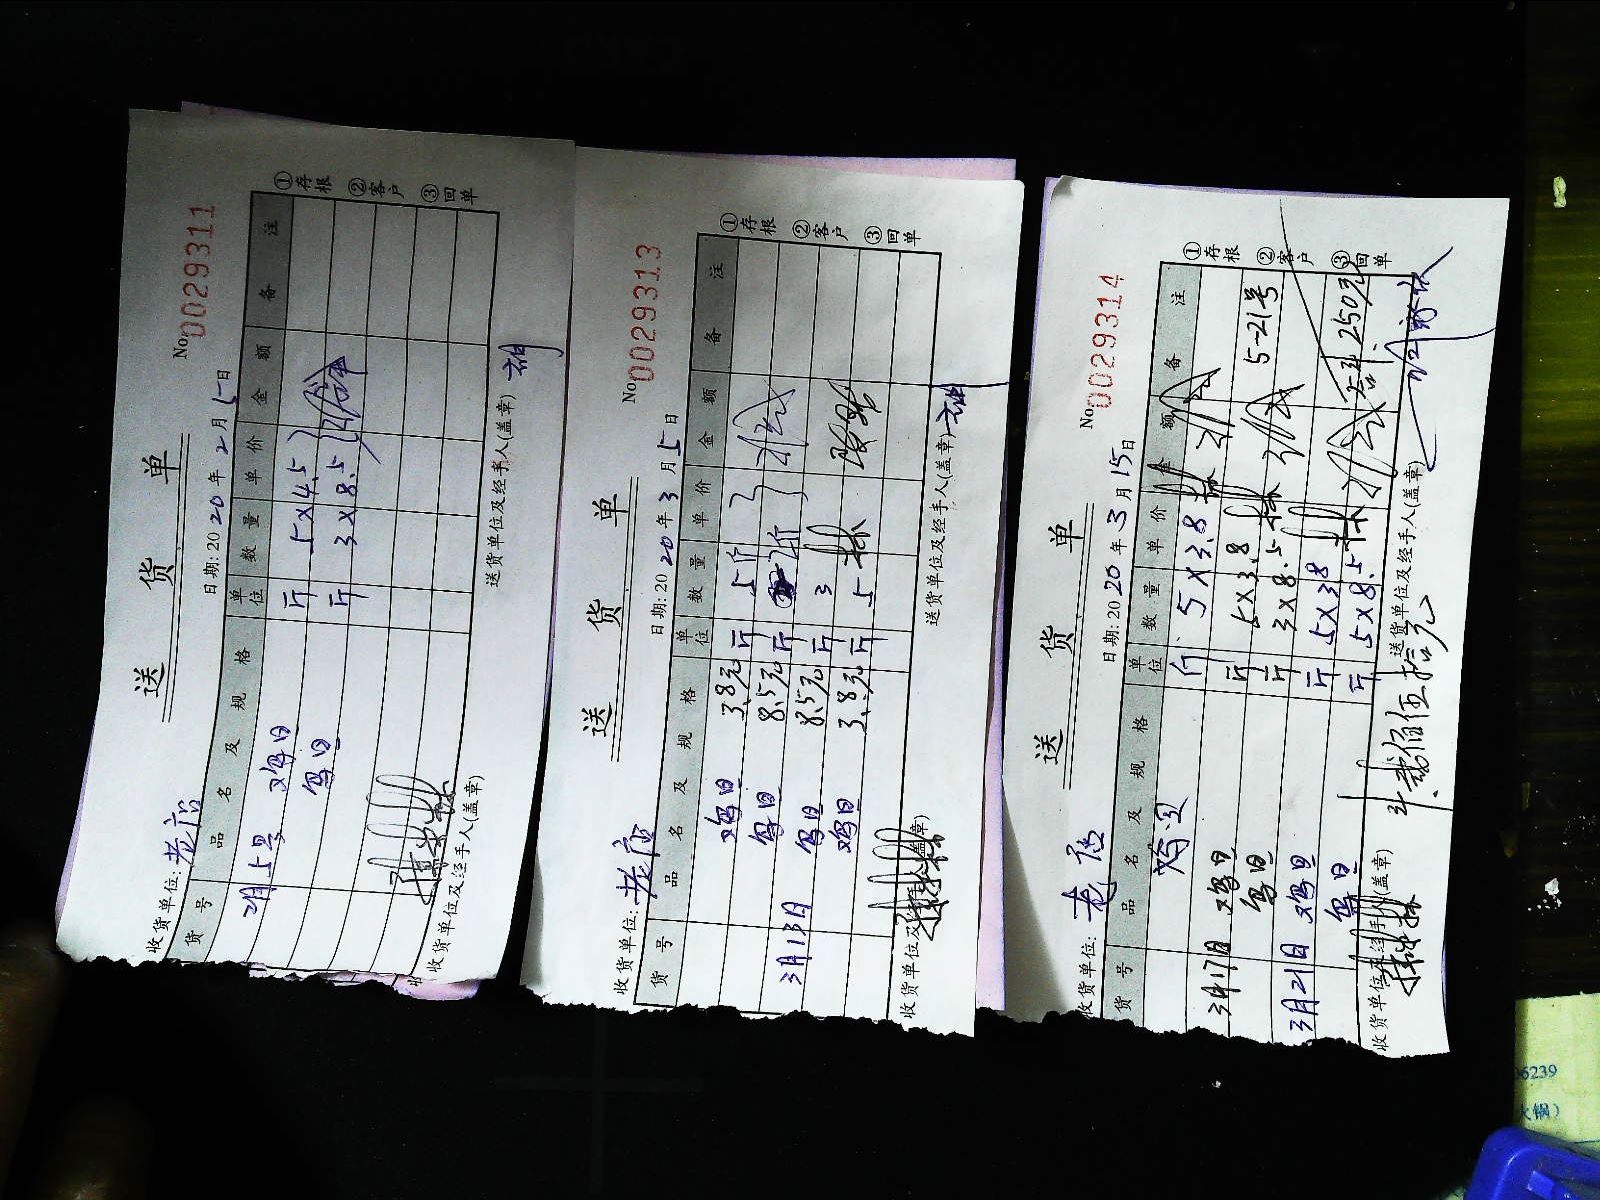 送 货 单
No 0029311
收货单位: 老店 日期: 2020年2月5日
货号 品名及规格 单位 数量 单价 金额 备注
2月5号 鸡旦 斤 5×4.5
旦 斤 3×8.5
①存根 ②客户 ③回单
收货单位及经手人(盖章) 送货单位及经手人(盖章)
送 货 单
No 0029313
收货单位: 老店 日期: 2020年3月5日
货号 品名及规格 单位 数量 单价 金额 备注
鸡旦 3.8元 斤 5斤
旦 8.5元 斤 2斤
3月13日 旦 8.5元 斤 3
鸡旦 3.8元 斤 5
①存根 ②客户 ③回单
收货单位及 (盖章) 送货单位及经手人(盖章)
送 货 单
No 0029314
收货单位: 老店 日期: 2020年3月15日
货号 品名及规格 单位 数量 单价 额 备注
鸡旦 斤 5×3.8
3月17日 鸡旦 斤 5×3.8 5-21号
旦 斤 3×8.5
3月21日 鸡旦 斤 5×38
旦 斤 5×8.5 250元
①存根 ②客户 ③回单
收货单位及经手人(盖章) 送货单位及经手人(盖章)
贰佰伍拾元
36239
火锅)